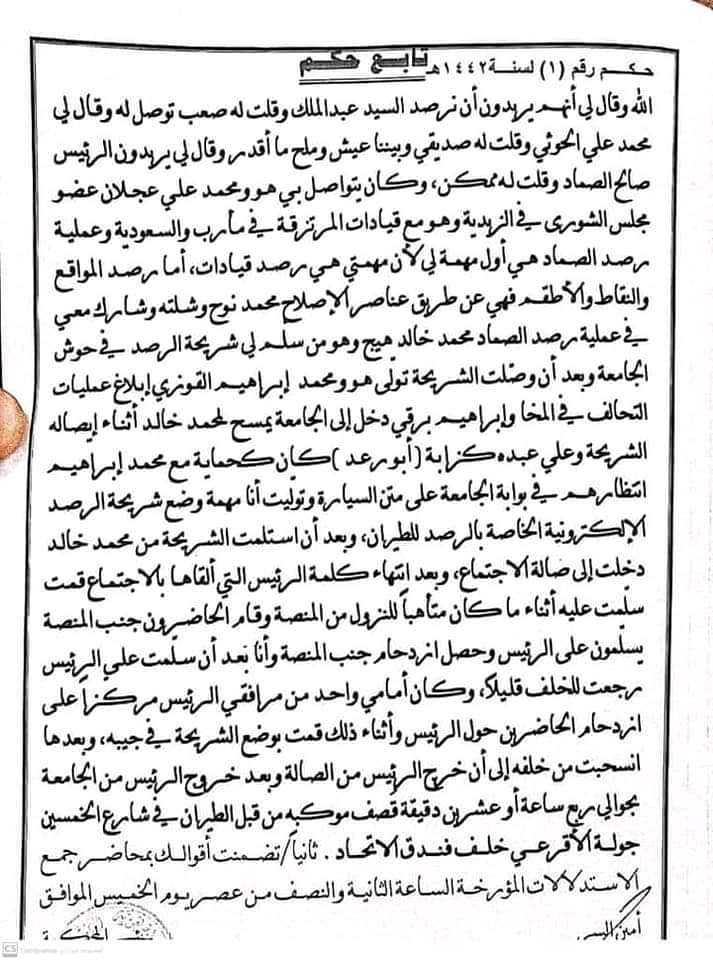 حكم رقم (١) لسنة ١٤٤٢هـ تابع حكم
الله وقال لي أنهم يريدون أن نرصد السيد عبدالملك وقلت له صعب توصل له وقال لي
محمد علي الحوثي وقلت له صديقي وبيننا عيش وملح ما أقدر وقال لي يريدون الرئيس
صالح الصماد وقلت له ممكن، وكان يتواصل بي هو ومحمد علي عجلان عضو
مجلس الشورى في الزيدية وهو مع قيادات المرتزقة في مأرب والسعودية وعملية
رصد الصماد هي أول مهمة لي لأن مهمتي هي رصد قيادات، أما رصد المواقع
والنقاط والأطقم فهي عن طريق عناصر الإصلاح محمد نوح وشلته وشارك معي
في عملية رصد الصماد محمد خالد هيج وهو من سلم لي شريحة الرصد في حوش
الجامعة وبعد أن وصّلت الشريحة تولى هو ومحمد إبراهيم القوزي إبلاغ عمليات
التحالف في المخا وإبراهيم برقي دخل إلى الجامعة يمسح لمحمد خالد أثناء إيصاله
الشريحة وعلي عبده كزابة (أبو رعد) كان كحماية مع محمد إبراهيم
انتظارهم في بوابة الجامعة على متن السيارة وتوليت أنا مهمة وضع شريحة الرصد
الإلكترونية الخاصة بالرصد للطيران، وبعد أن استلمت الشريحة من محمد خالد
دخلت إلى صالة الاجتماع، وبعد انتهاء كلمة الرئيس التي ألقاها بالاجتماع قمت
سلّمت عليه أثناء ما كان متأهباً للنزول من المنصة وقام الحاضرون جنب المنصة
يسلمون على الرئيس وحصل ازدحام جنب المنصة وأنا بعد أن سلمت على الرئيس
رجعت للخلف قليلاً، وكان أمامي واحد من مرافقي الرئيس مركزاً على
ازدحام الحاضرين حول الرئيس وأثناء ذلك قمت بوضع الشريحة في جيبه، وبعدها
انسحبت من خلفه إلى أن خرج الرئيس من الصالة وبعد خروج الرئيس من الجامعة
بحوالي ربع ساعة أو عشرين دقيقة قصف موكبه من قبل الطيران في شارع الخمسين
جولة الأقرعي خلف فندق الاتحاد . ثانياً/ تضمنت أقوالك بمحاضر جمع
الاستدلالات المؤرخة الساعة الثانية والنصف من عصر يوم الخميس الموافق
أمين السر
CS